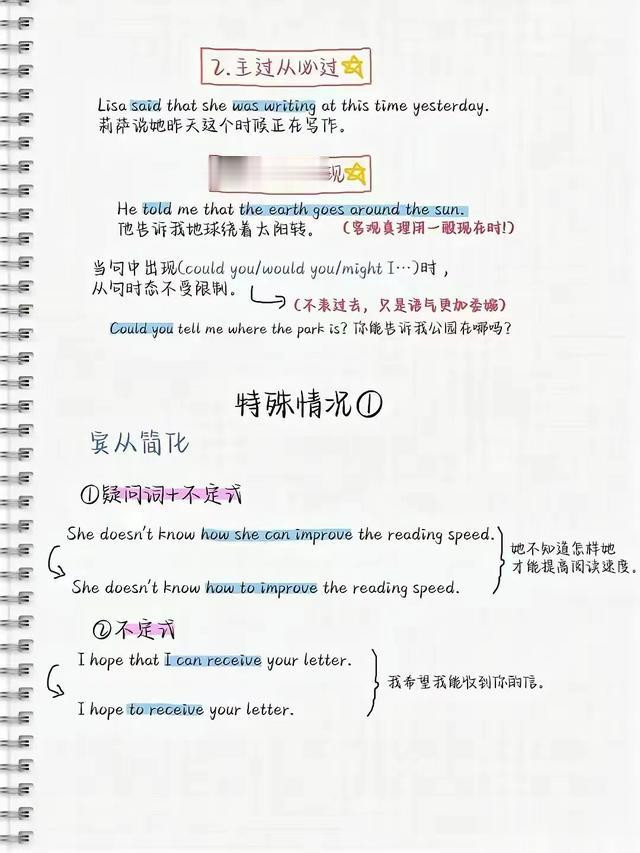 2.主过从必过
Lisa said that she was writing at this time yesterday.
莉萨说她昨天这个时候正在写作。
现
He told me that the earth goes around the sun.
他告诉我地球绕着太阳转。（客观真理用一般现在时!）
当句中出现(could you/would you/might I…)时，
从句时态不受限制。
（不表过去，只是语气更加委婉）
Could you tell me where the park is? 你能告诉我公园在哪吗?
特殊情况①
宾从简化
①疑问词+不定式
She doesn't know how she can improve the reading speed.
She doesn't know how to improve the reading speed.
她不知道怎样她
才能提高阅读速度。
②不定式
I hope that I can receive your letter.
I hope to receive your letter.
我希望我能收到你的信。